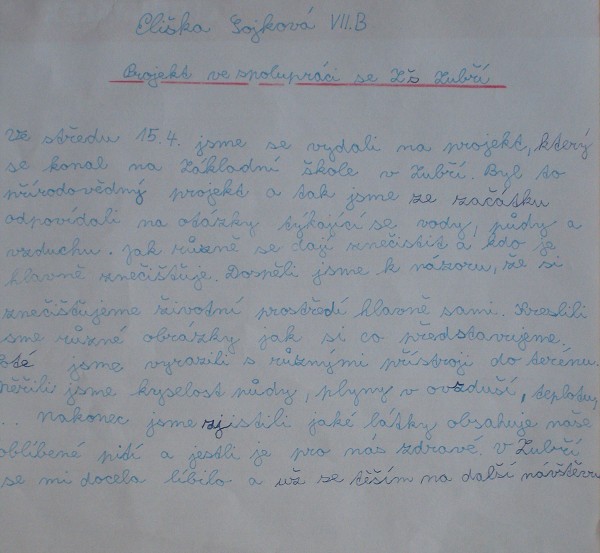 Eliška Sojková VII.B
Projekt ve spolupráci se Zš Zubří
Ve středu 15.4. jsme se vydali na projekt, který
se konal na Základní škole v Zubří. Byl to
přírodovědný projekt a tak jsme ze začátku
odpovídali na otázky týkající se vody, půdy a
vzduchu. Jak různě se dají znečistit a kdo je
hlavně znečišťuje. Dospěli jsme k názoru, že si
znečišťujeme životní prostředí hlavně sami. Kreslili
sme různé obrázky jak si co představujeme.
oté jsme vyrazili s různými přístroji do terénu.
ěřili jsme kyselost půdy, plyny v ovzduší, teplotu,
.. nakonec jsme zjistili jaké látky obsahuje naše
oblíbené pití a jestli je pro nás zdravé. V Zubří
se mi docela líbilo a už se těším na další návštěvu